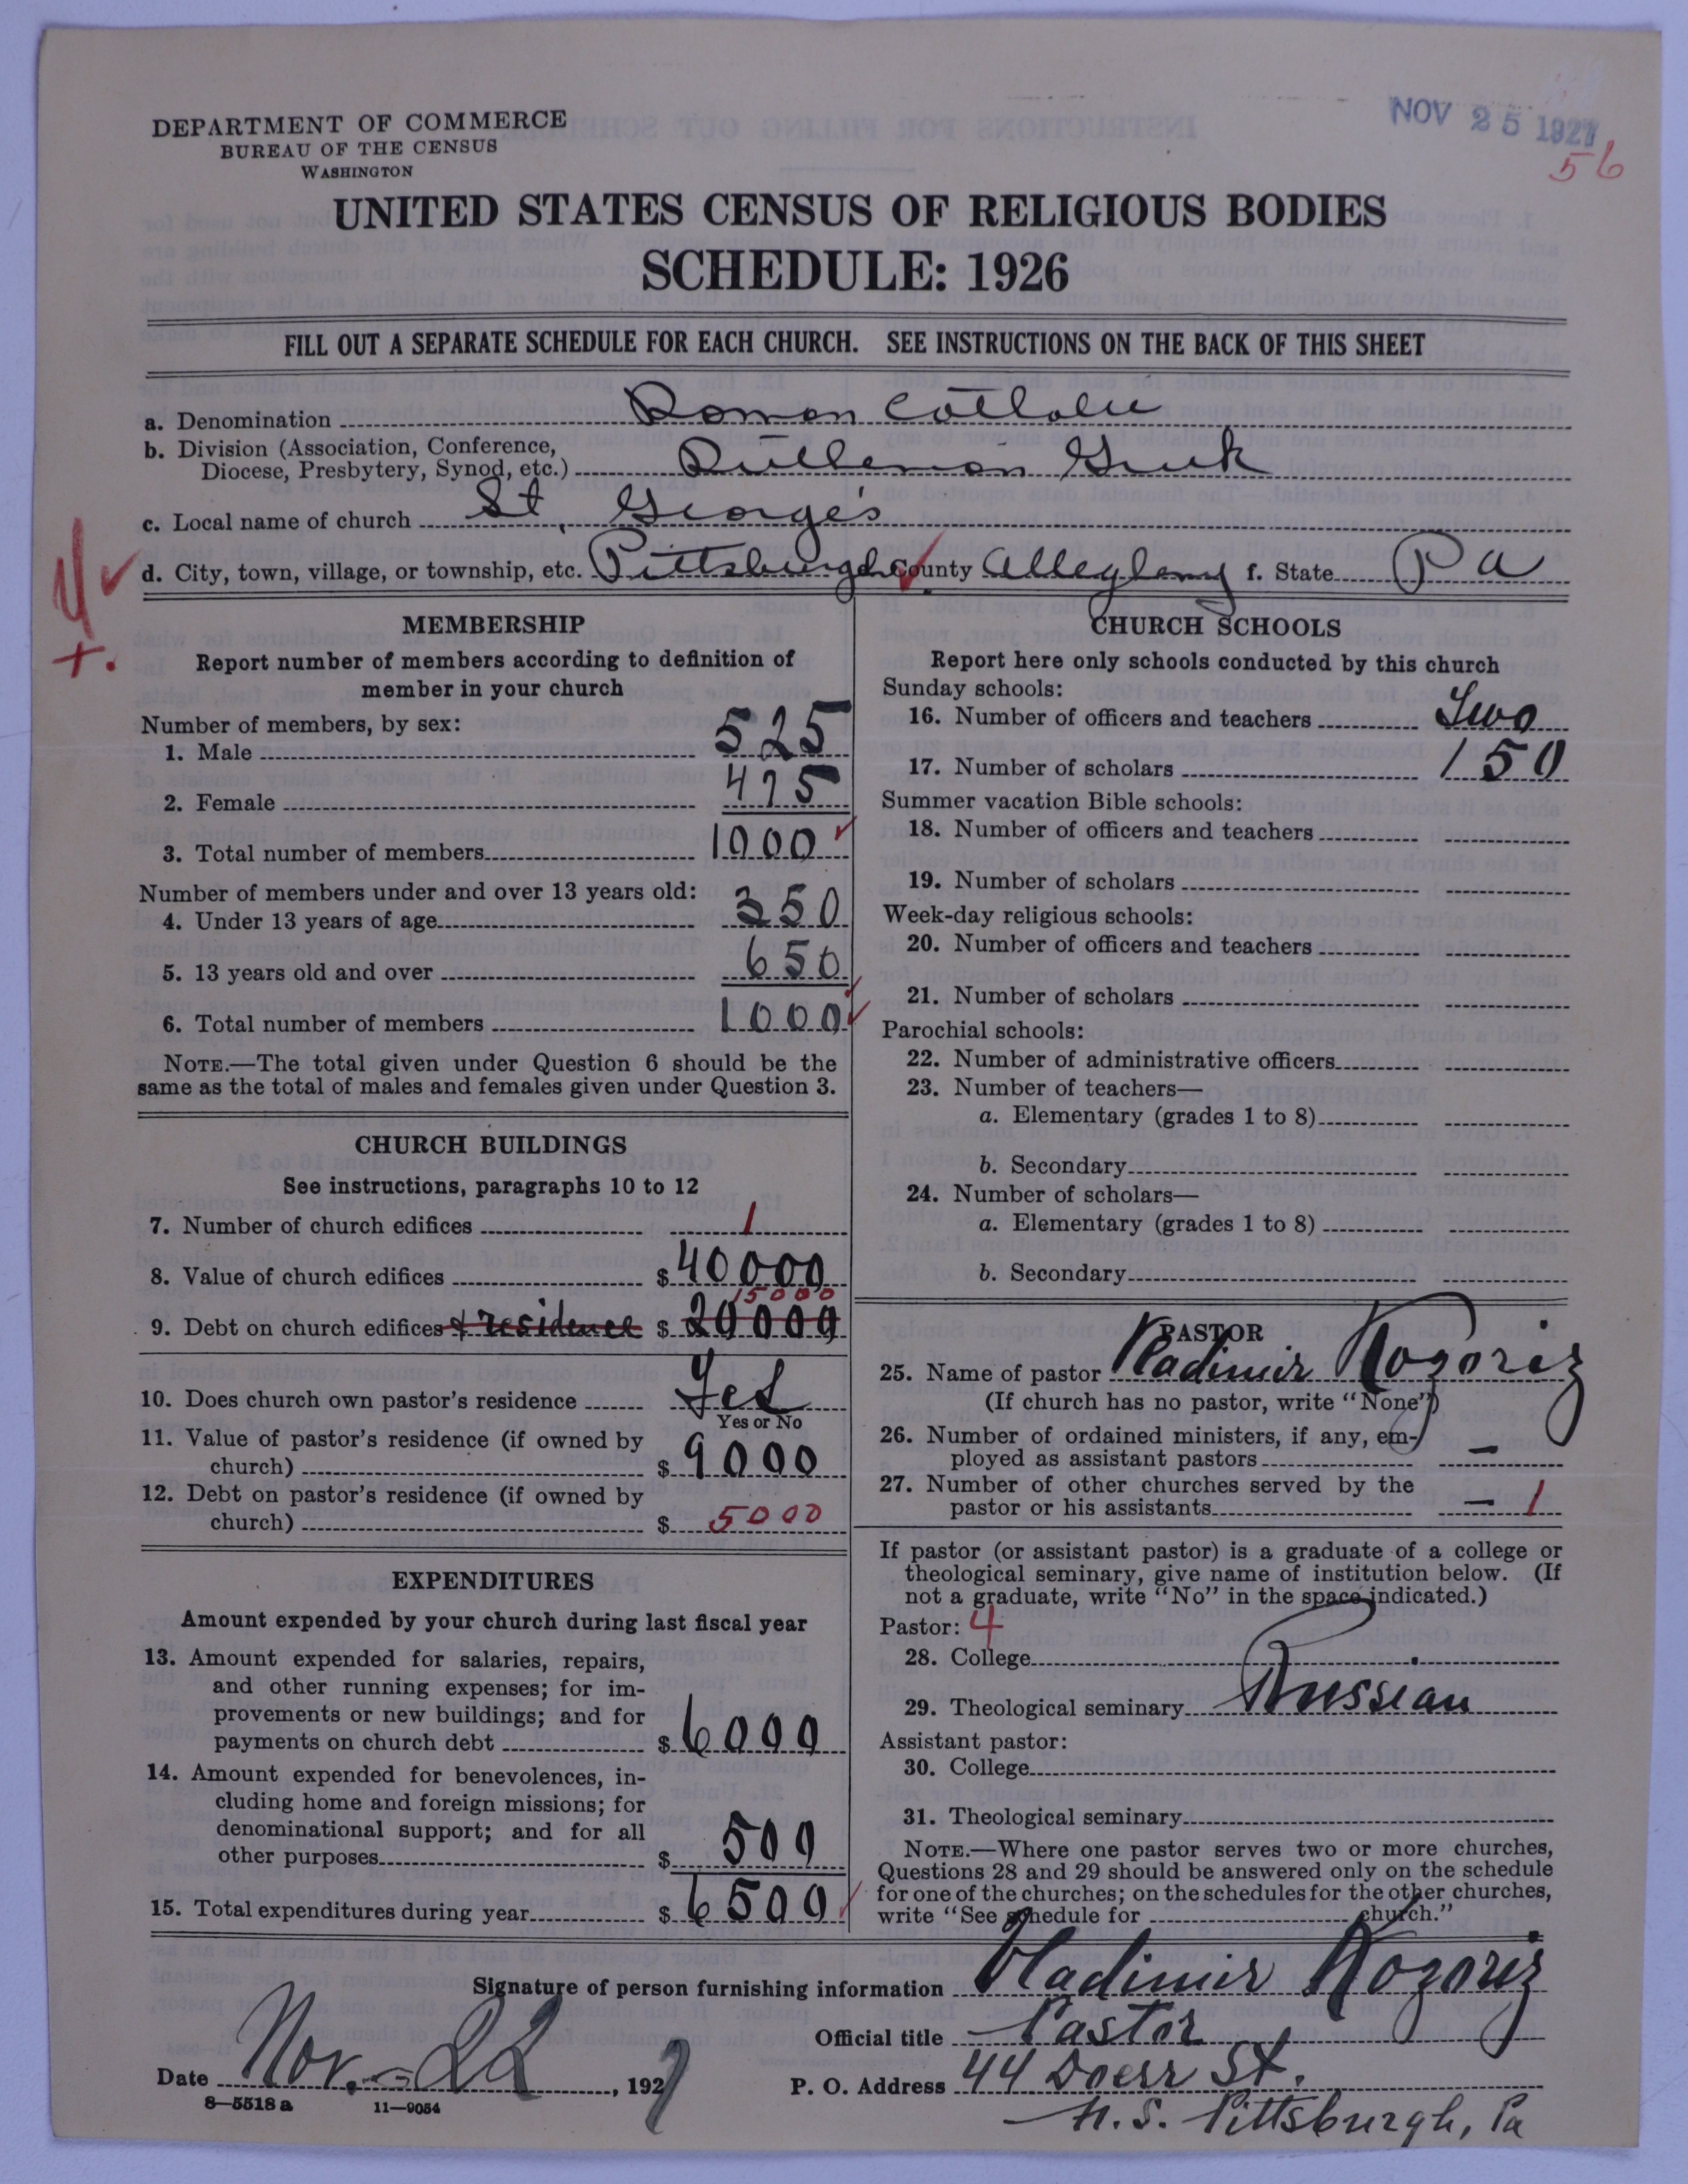 DEPARTMENT OF COMMERCE
BUREAU OF THE CENSUS
WASHINGTON
NOV 25 1927
56
UNITED STATES CENSUS OF RELIGIOUS BODIES
SCHEDULE: 1926
FILL OUT A SEPARATE SCHEDULE FOR EACH CHURCH. SEE INSTRUCTIONS ON THE BACK OF THIS SHEET
a. Denomination Roman Catholic
b. Division (Association, Conference,
Diocese, Presbytery, Synod, etc.) Ruthenian Greek
c. Local name of church St. George's
d. City, town, village, or township, etc. Pittsburgh County Allegheny f. State Pa
MEMBERSHIP
Report number of members according to definition of
member in your church
Number of members, by sex:
1. Male 525
2. Female 475
3. Total number of members 1000
Number of members under and over 13 years old:
4. Under 13 years of age 350
5. 13 years old and over 650
6. Total number of members 1000
NOTE.—The total given under Question 6 should be the
same as the total of males and females given under Question 3.
CHURCH BUILDINGS
See instructions, paragraphs 10 to 12
7. Number of church edifices 1
8. Value of church edifices $ 40000
15000
9. Debt on church edifices & residence $ 20000
10. Does church own pastor's residence Yes
Yes or No
11. Value of pastor's residence (if owned by
church) $ 9000
12. Debt on pastor's residence (if owned by
church) $ 5000
EXPENDITURES
Amount expended by your church during last fiscal year
13. Amount expended for salaries, repairs,
and other running expenses; for im-
provements or new buildings; and for
payments on church debt $ 6000
14. Amount expended for benevolences, in-
cluding home and foreign missions; for
denominational support; and for all
other purposes $ 500
15. Total expenditures during year $ 6500
CHURCH SCHOOLS
Report here only schools conducted by this church
Sunday schools:
16. Number of officers and teachers Two
17. Number of scholars 150
Summer vacation Bible schools:
18. Number of officers and teachers
19. Number of scholars
Week-day religious schools:
20. Number of officers and teachers
21. Number of scholars
Parochial schools:
22. Number of administrative officers
23. Number of teachers—
a. Elementary (grades 1 to 8)
b. Secondary
24. Number of scholars—
a. Elementary (grades 1 to 8)
b. Secondary
PASTOR
25. Name of pastor Vladimir Kozoriz
(If church has no pastor, write "None")
26. Number of ordained ministers, if any, em-
ployed as assistant pastors —
27. Number of other churches served by the
pastor or his assistants — 1
If pastor (or assistant pastor) is a graduate of a college or
theological seminary, give name of institution below. (If
not a graduate, write "No" in the space indicated.)
Pastor: 4
28. College
29. Theological seminary Russian
Assistant pastor:
30. College
31. Theological seminary
NOTE.—Where one pastor serves two or more churches,
Questions 28 and 29 should be answered only on the schedule
for one of the churches; on the schedules for the other churches,
write "See schedule for church."
Signature of person furnishing information Vladimir Kozoriz
Official title Pastor
Date Nov. 22, 1927
P. O. Address 44 Doerr St.
N. S. Pittsburgh, Pa
8—5518 a 11—9054